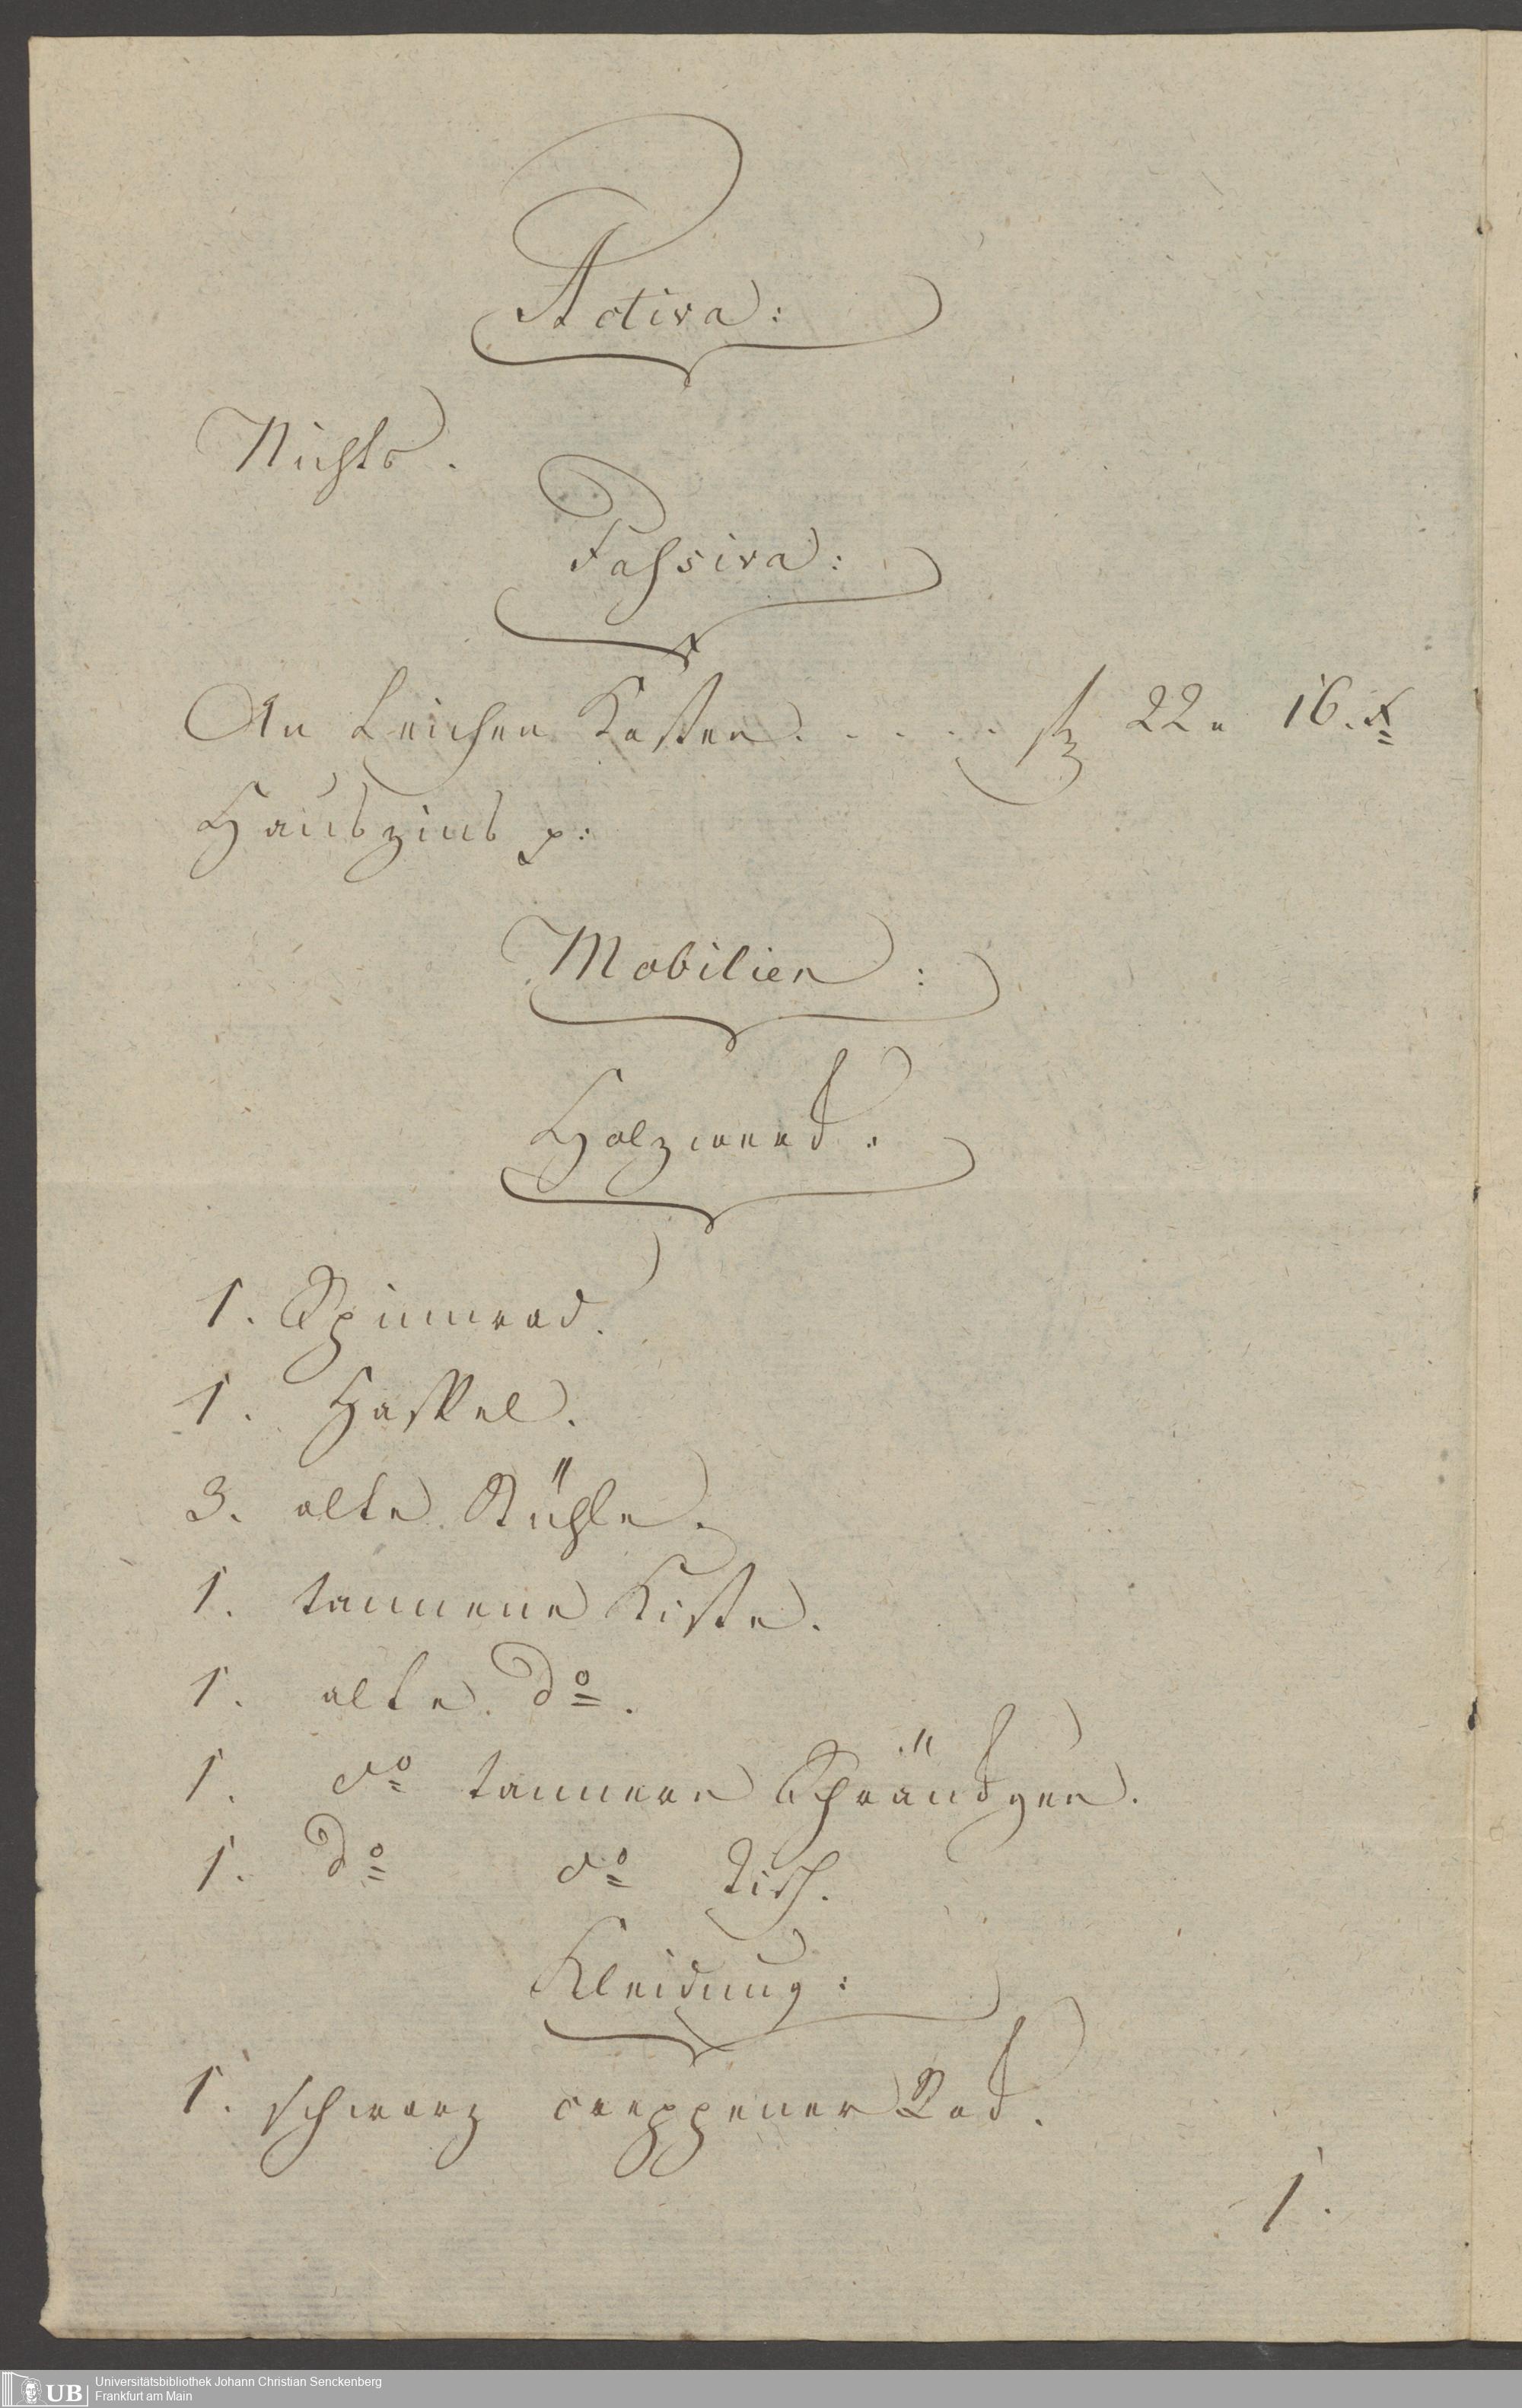 Activa:
Nichts.
Passiva:
An Leichen Kosten. . . . . . f 22. 16. x
Hauszins p:
Mobilien:
Holzwerck:
1. Spinnrad.
1. Haspel.
3. alte Stühle.
1. tannene Kiste.
1. alte. do.
1. do tannern Schränckgen.
1. do do Tisch.
Kleidung:
1. schwarz creppener Rock.
1.
UB Universitätsbibliothek Johann Christian Senckenberg
Frankfurt am Main